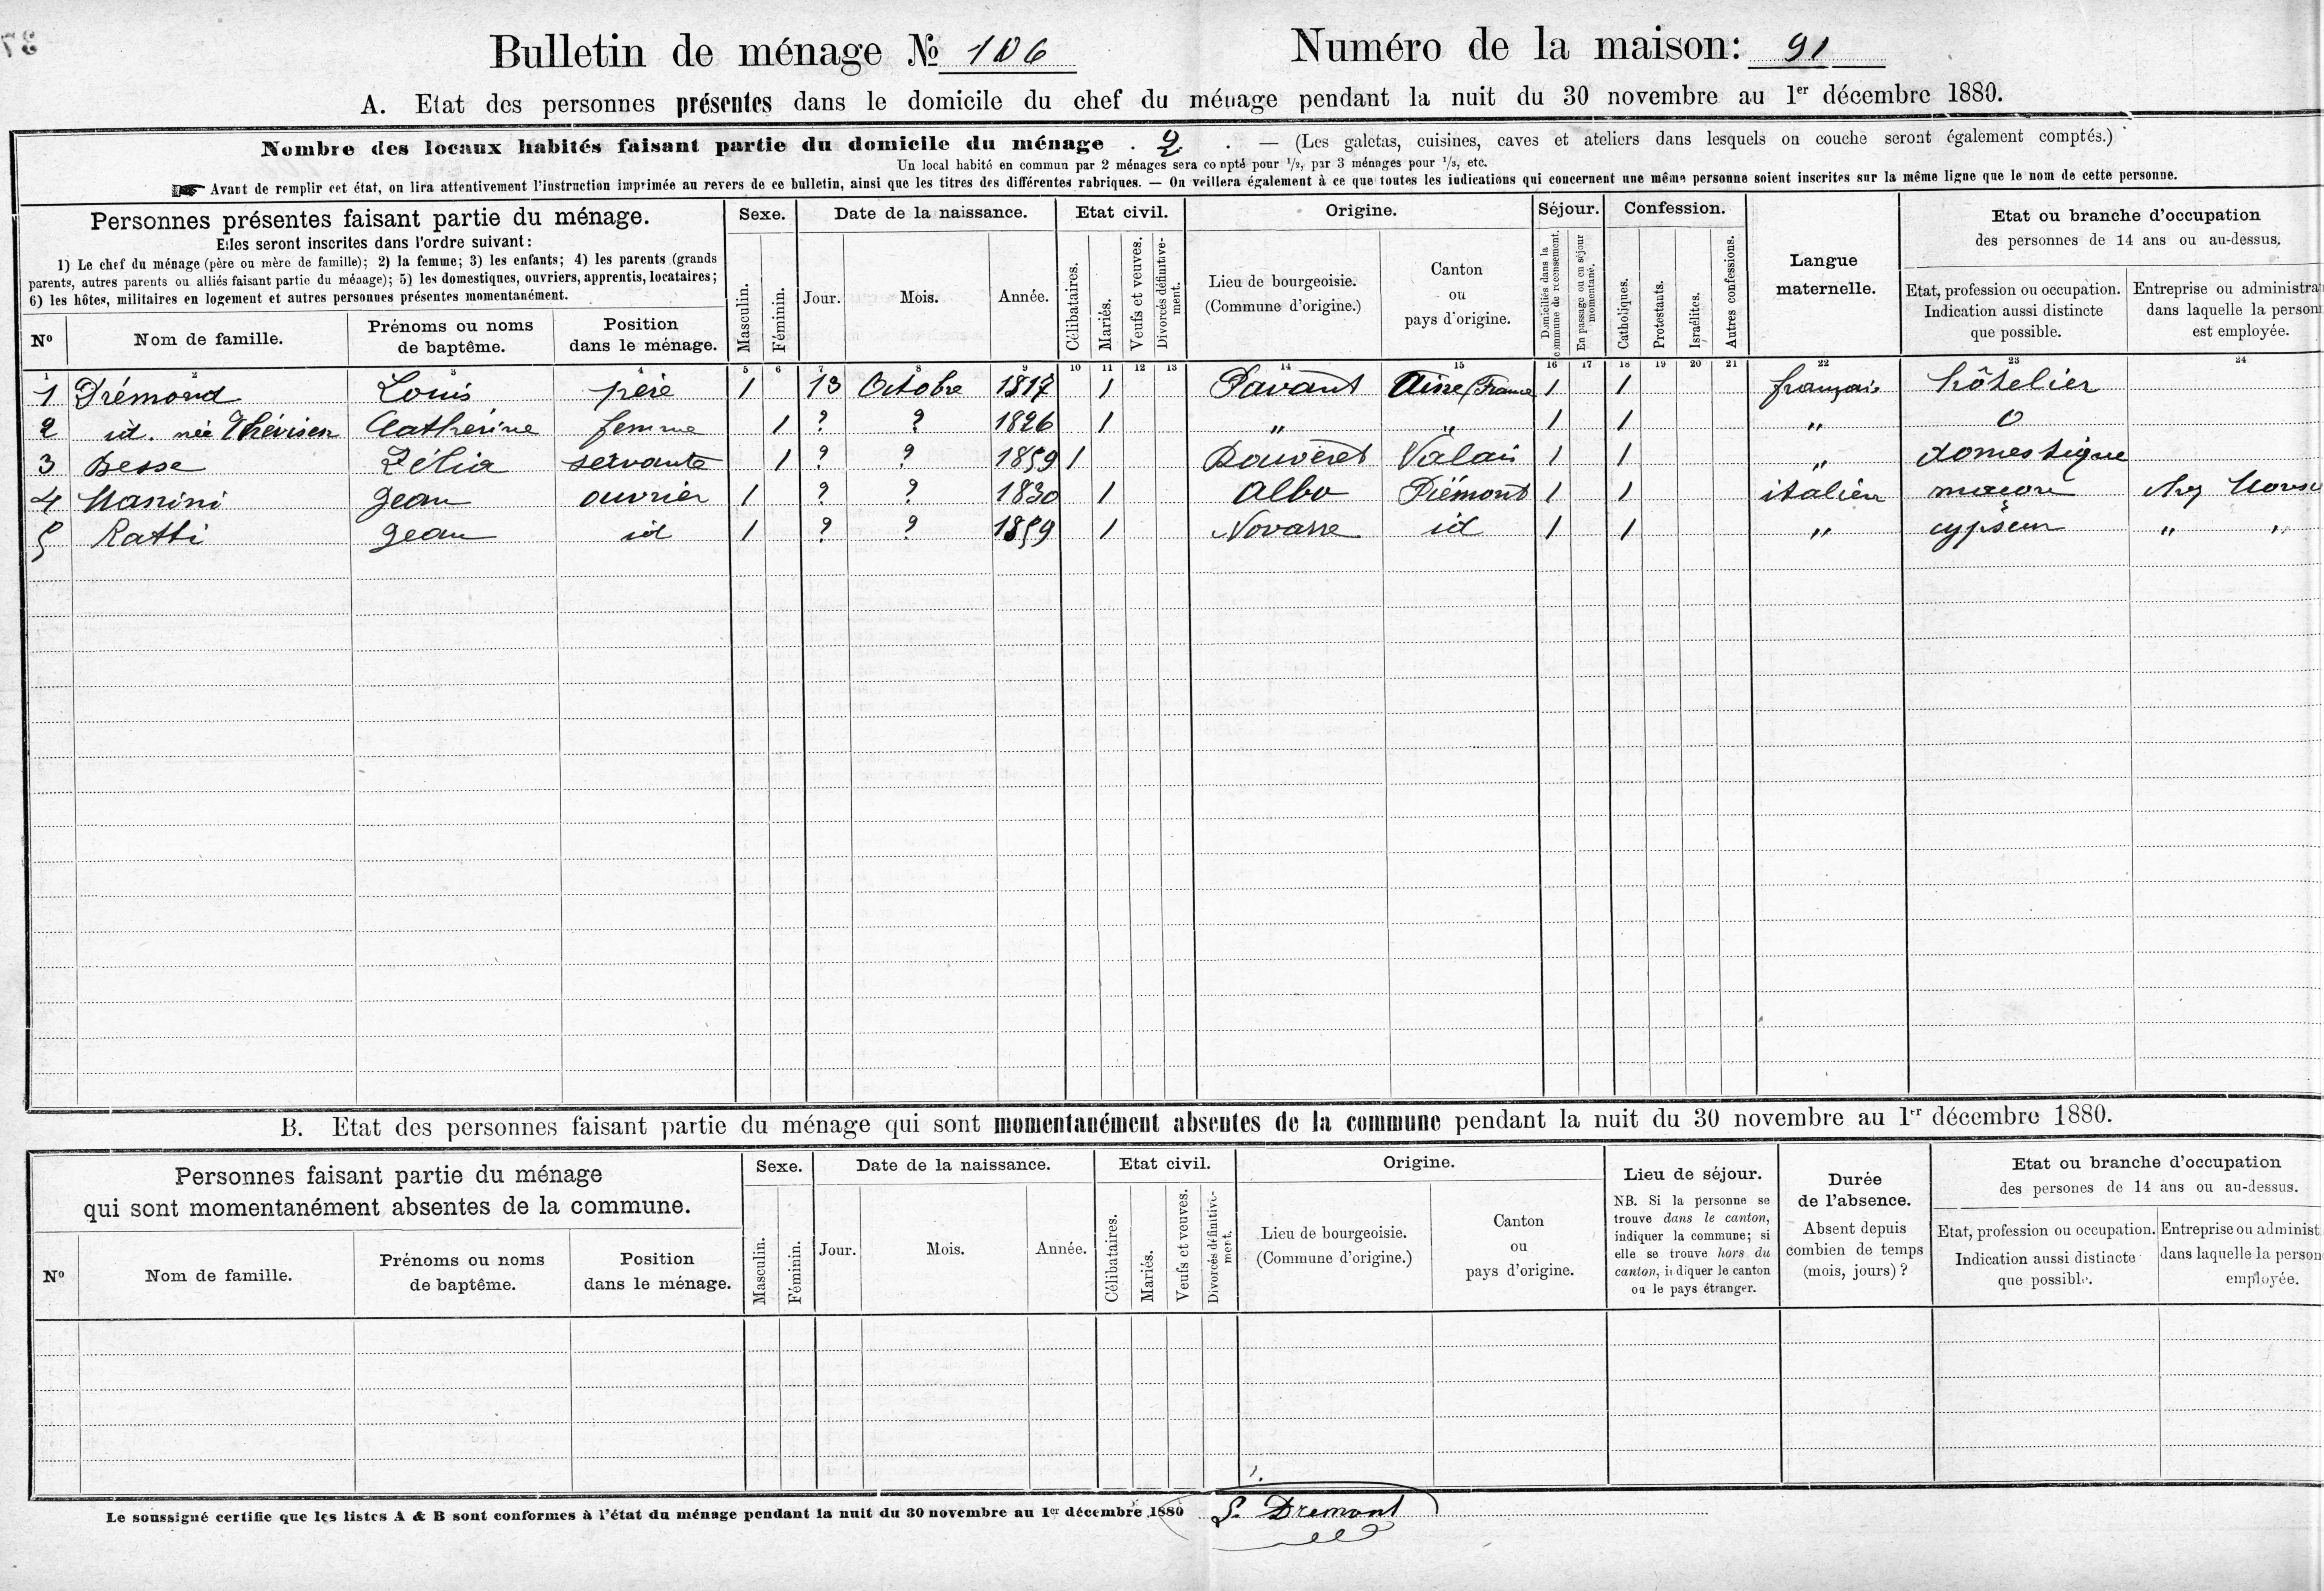 37
Bulletin de ménage No 106 Numéro de la maison: 91
A. Etat des personnes présentes dans le domicile du chef du ménage pendant la nuit du 30 novembre au 1er décembre 1880.
Nombre des locaux habités faisant partie du domicile du ménage . 2 . — (Les galetas, cuisines, caves et ateliers dans lesquels on couche seront également comptés.)
Un local habité en commun par 2 ménages sera compté pour 1/2, par 3 ménages pour 1/3, etc.
Avant de remplir cet état, on lira attentivement l'instruction imprimée au revers de ce bulletin, ainsi que les titres des différentes rubriques. — On veillera également à ce que toutes les indications qui concernent une même personne soient inscrites sur la même ligne que le nom de cette personne.
Personnes présentes faisant partie du ménage.
Elles seront inscrites dans l'ordre suivant:
1) Le chef du ménage (père ou mère de famille); 2) la femme; 3) les enfants; 4) les parents (grands
parents, autres parents ou alliés faisant partie du ménage); 5) les domestiques, ouvriers, apprentis, locataires;
6) les hôtes, militaires en logement et autres personnes présentes momentanément.
No
Nom de famille.
Prénoms ou noms
de baptême.
Position
dans le ménage.
Sexe.
Masculin.
Féminin.
Date de la naissance.
Jour.
Mois.
Année.
Etat civil.
Célibataires.
Mariés.
Veufs et veuves.
Divorcés définitive-
ment.
Origine.
Lieu de bourgeoisie.
(Commune d'origine.)
Canton
ou
pays d'origine.
Séjour.
Domiciliés dans la
commune de recensement.
En passage ou en séjour
momentané.
Confession.
Catholiques.
Protestants.
Israélites.
Autres confessions.
Langue
maternelle.
Etat ou branche d'occupation
des personnes de 14 ans ou au-dessus.
Etat, profession ou occupation.
Indication aussi distincte
que possible.
Entreprise ou administra
dans laquelle la person
est employée.
1 2 3 4 5 6 7 8 9 10 11 12 13 14 15 16 17 18 19 20 21 22 23 24
1 Drémond Louis père 1 13 Octobre 1817 1 Pavant Aisne (France 1 1 français hôtelier
2 id. née Catherine femme 1 ? ? 1826 1 " " 1 1 " 0
3 Besse Zélia servante 1 ? ? 1859 1 Bouveret Valais 1 1 " domestique
4 Manini Jean ouvrier 1 ? ? 1830 1 Albo Piémont 1 1 italien maçon chez
5 Ratti Jean id 1 ? ? 1859 1 Novarre id 1 1 " gypseur " "
B. Etat des personnes faisant partie du ménage qui sont momentanément absentes de la commune pendant la nuit du 30 novembre au 1er décembre 1880.
Personnes faisant partie du ménage
qui sont momentanément absentes de la commune.
No
Nom de famille.
Prénoms ou noms
de baptême.
Position
dans le ménage.
Sexe.
Masculin.
Féminin.
Date de la naissance.
Jour.
Mois.
Année.
Etat civil.
Célibataires.
Mariés.
Veufs et veuves.
Divorcés définitive-
ment.
Origine.
Lieu de bourgeoisie.
(Commune d'origine.)
Canton
ou
pays d'origine.
Lieu de séjour.
NB. Si la personne se
trouve dans le canton,
indiquer la commune; si
elle se trouve hors du
canton, indiquer le canton
ou le pays étranger.
Durée
de l'absence.
Absent depuis
combien de temps
(mois, jours)?
Etat ou branche d'occupation
des persones de 14 ans ou au-dessus.
Etat, profession ou occupation.
Indication aussi distincte
que possible.
Entreprise ou administ
dans laquelle la person
employée.
Le soussigné certifie que les listes A & B sont conformes à l'état du ménage pendant la nuit du 30 novembre au 1er décembre 1880 L. Dremont